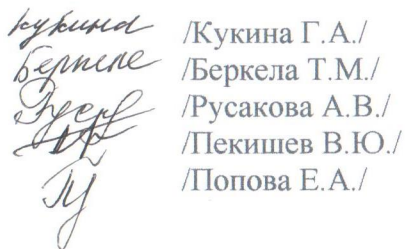 Кукина /Кукина Г.А./
/Беркела Т.М./
/Русакова А.В./
/Пекишев В.Ю./
/Попова Е.А./